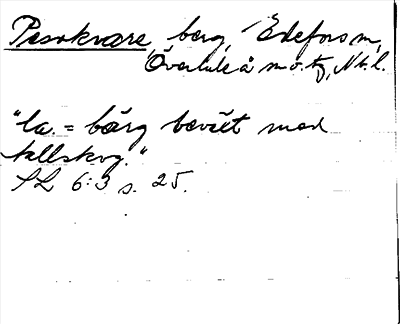 Pesokvare, berg, Edefors sn,
Överluleå m. o. tg, Nb. l.
"la. = bärg bevext med
tallskog."
SL 6:3 s. 25.